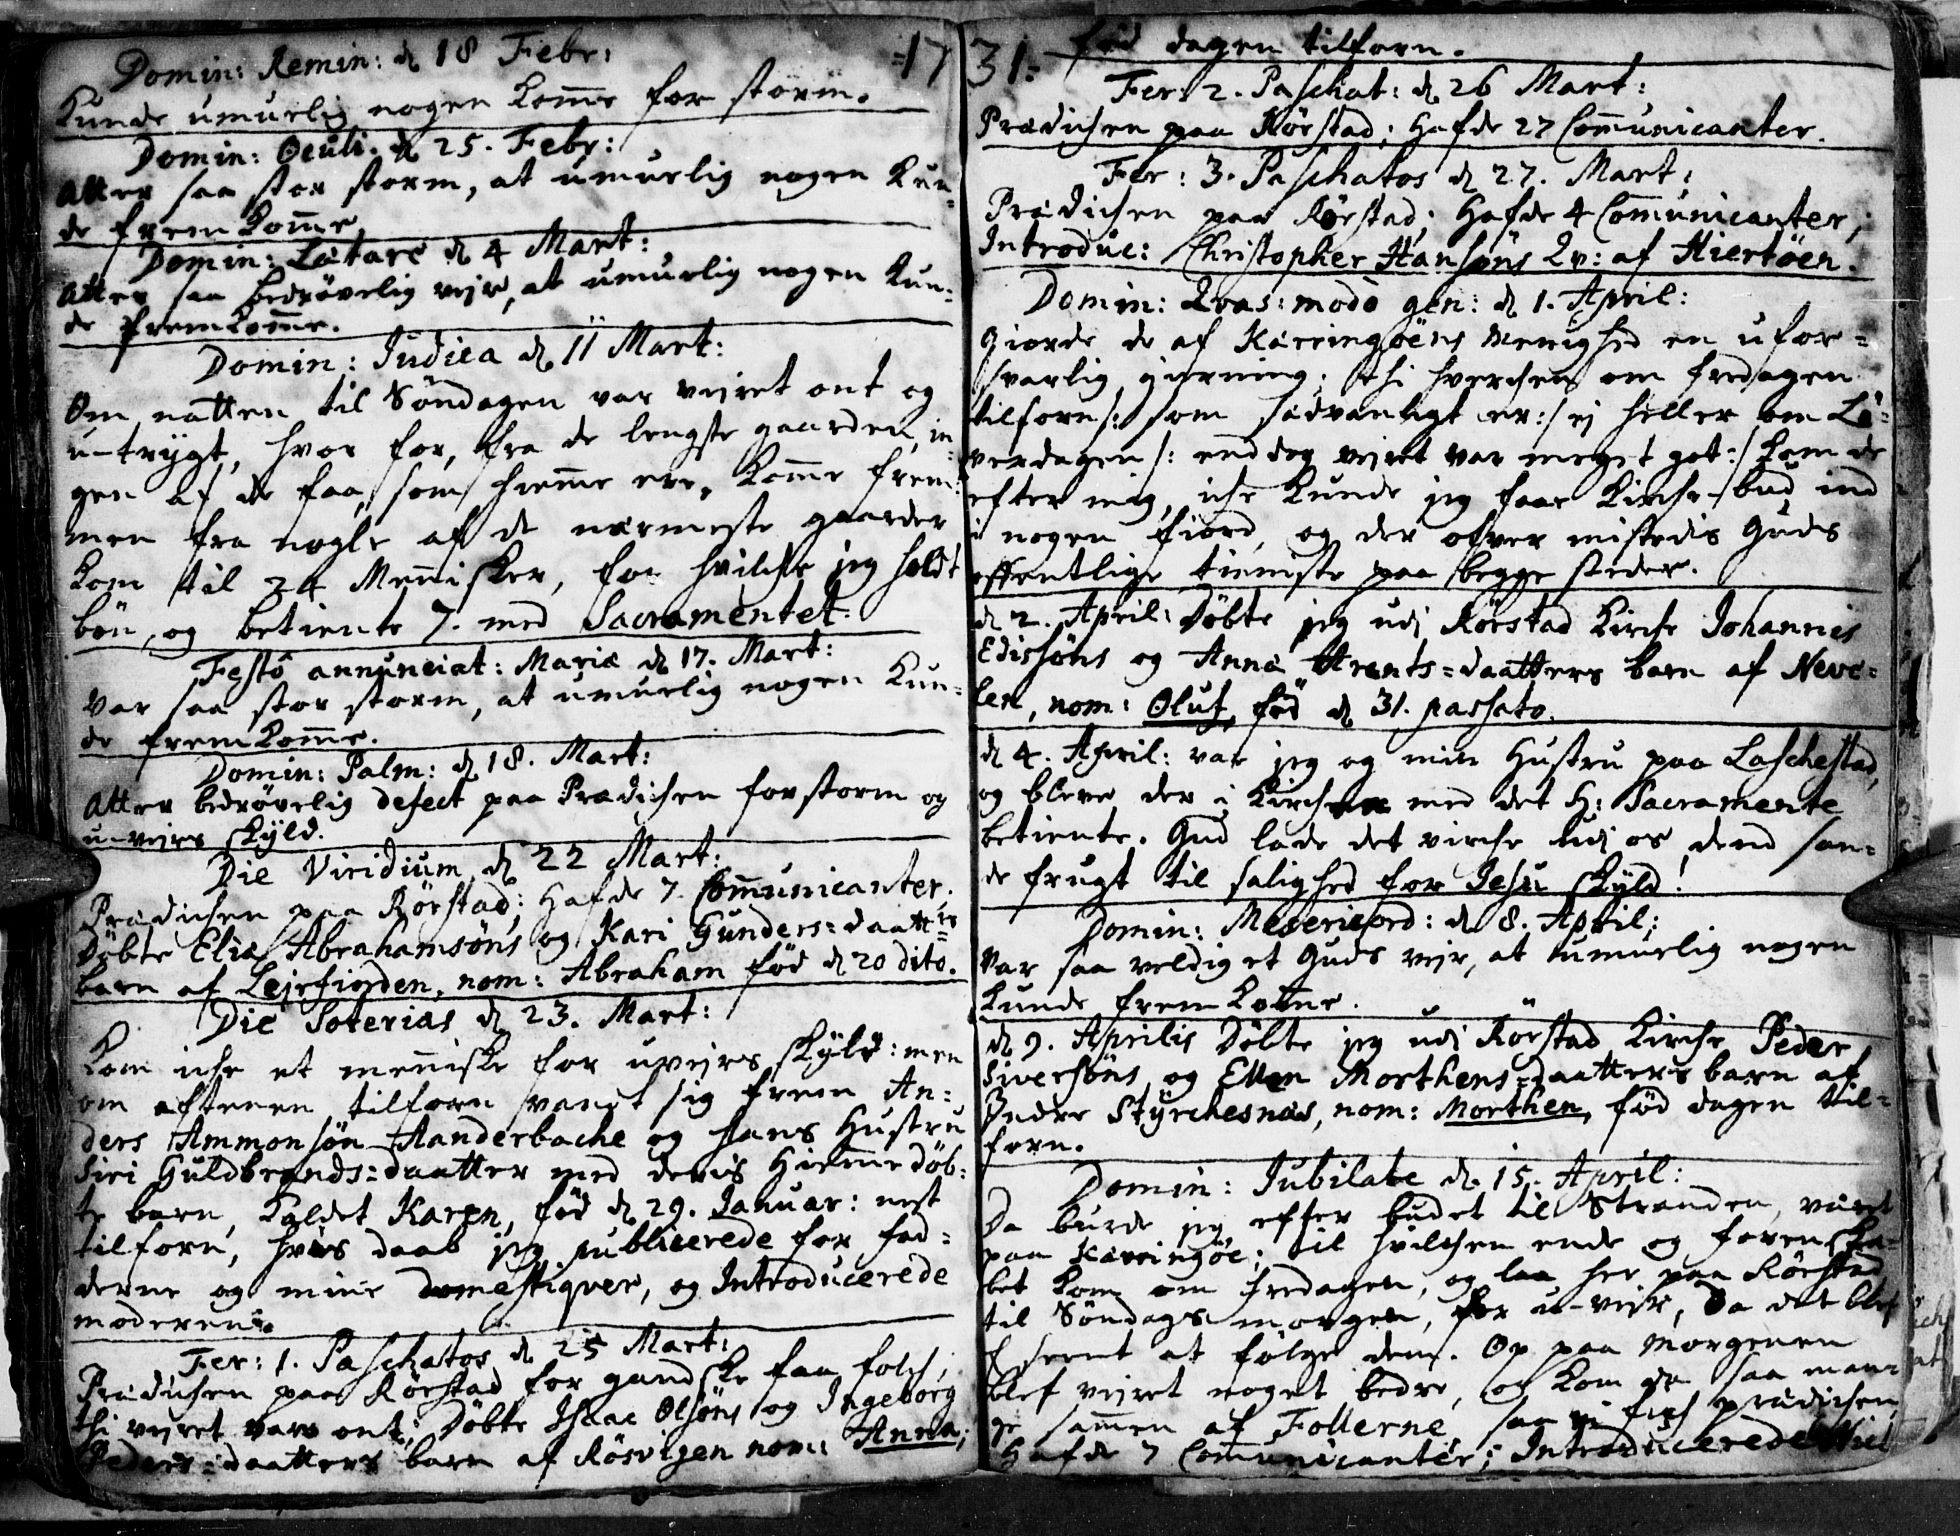 Domin: Remin: d. 18 Febr:
Kunde umuelig nogen komme for storm.
Domin: Oculi. d. 25. Febr:
Atter saa stor storm, at umuelig nogen kun-
de frem komme.
Domin: Lætare d. 4 Mart:
Atter saa bedrøvelig vejr, at umuelig nogen kun-
de frem komme.
Domin: Judica d. 11 Mart:
Om natten til Söndagen var vejret ont og
u-trygt, hvor for, fra de lengste gaarder, in-
gen af de faa, som hiemme ere, komme frem:
men fra nogle af de nærmeste gaarder
kom til 24 Menisker, for hvilche jeg holdt
bön, og betiente 7. med Sacramentet.
Festô annunciat: Mariæ d. 17. Mart:
Var saa stor storm, at umuelig nogen kun-
de frem komme.
Domin: Palm: d. 18. Mart:
Atter bedrøvelig defect paa Prædichen for storm og
u-vejrs skÿld.
Die Viridium d. 22 Mart:
Prædichen paa Rörstad; Hafde 7. Communicanter.
Döbte Eliæ Abrahamsöns og Kari Gunders=daatters
barn af Lejefiorden, nom: Abraham fød d. 20 dito.
Die Soterias d. 23. Mart:
Kom iche et meniske for uvejrs skÿld: men
om aftenen tilforn vand sig frem An-
ders Ammonsön Aanderbache og hans Hustru
Siri Guldbrands=daatter med deris Hiemmedöb-
te barn, kaldet Karen, fød d. 29. Januar: nest
tilforn, hvis daab jeg publicerede for fad-
derne og mine domestiqver, og Introducerede
moderen.
Fer: 1. Paschatos d. 25 Mart:
Prædichen paa Rörstad for gandske faa folch,
thi vejret var ont; Döbte Isaac Olsöns og Ingeborg
Peders=daatters barn af Rösvigen nom: Anna;
=17
31=
fød dagen tilforn.
Fer: 2. Paschat: d. 26 Mart:
Prædichen paa Rörstad; Hafde 27 Communicanter.
Fer: 3. Paschatos d. 27. Mart:
Prædichen paa Rörstad; Hafde 4 Communicanter;
Introduc: Christopher Hansöns Qv: af Hiertöen.
Domin: Qvas: modò gen: d. 1. April:
Giorde de af Kærringöens Menighed en ufor=
svarlig gierning; thi hverchen om fredagen
tilforn /: som sædvanligt er :/ ej heller om Lö-
verdagen /: end dog vejret var meget got :/ kom de
efter mig, iche kunde jeg faae Kirche-bud ind
i nogen fiord, og der ofver mistedis Guds
offentlige tienniste paa begge steder.
d. 2. April: Döbte jeg udi Rörstad Kirche Johannis
Edissöns og Anna Arents=daatters barn af Neve-
len, nom: Oluf, fød d. 31. passato.
d. 4. April: var jeg og min Hustru paa Laschestad,
og bleve der i Kirchen med det H: Sacramente
betiente. Gud lade det virche udi os dend san-
de frugt til salighed for Jesu skÿld!
Domin: Mesericord: d. 8. April:
Var saa veldig et Guds vejr, at umuelig nogen
kunde frem komme.
d. 9. Aprilis Döbte jeg udi Rörstad Kirche Peder
Siversöns og Ellen Morthens=daatters barn af
Indre Stÿrchesnæs, nom: Morthen, fød dagen til-
forn.
Domin: Jubilate d. 15. April:
Da burde jeg efter budet til Stranden, været
paa Kærringöe; til hvilchen ende og foren ska-
bet kom om fredagen, og laa her paa Rörstad
til Söndags morgen, for u-vejr, da det blef
seent at fölge dem. Op paa Morgenen
blef vejret noget bedre, og kom da saa man-
ge sammen af Follerne, saa vi fich prædichen,
Hafde 7 Communicanter; Introducerede